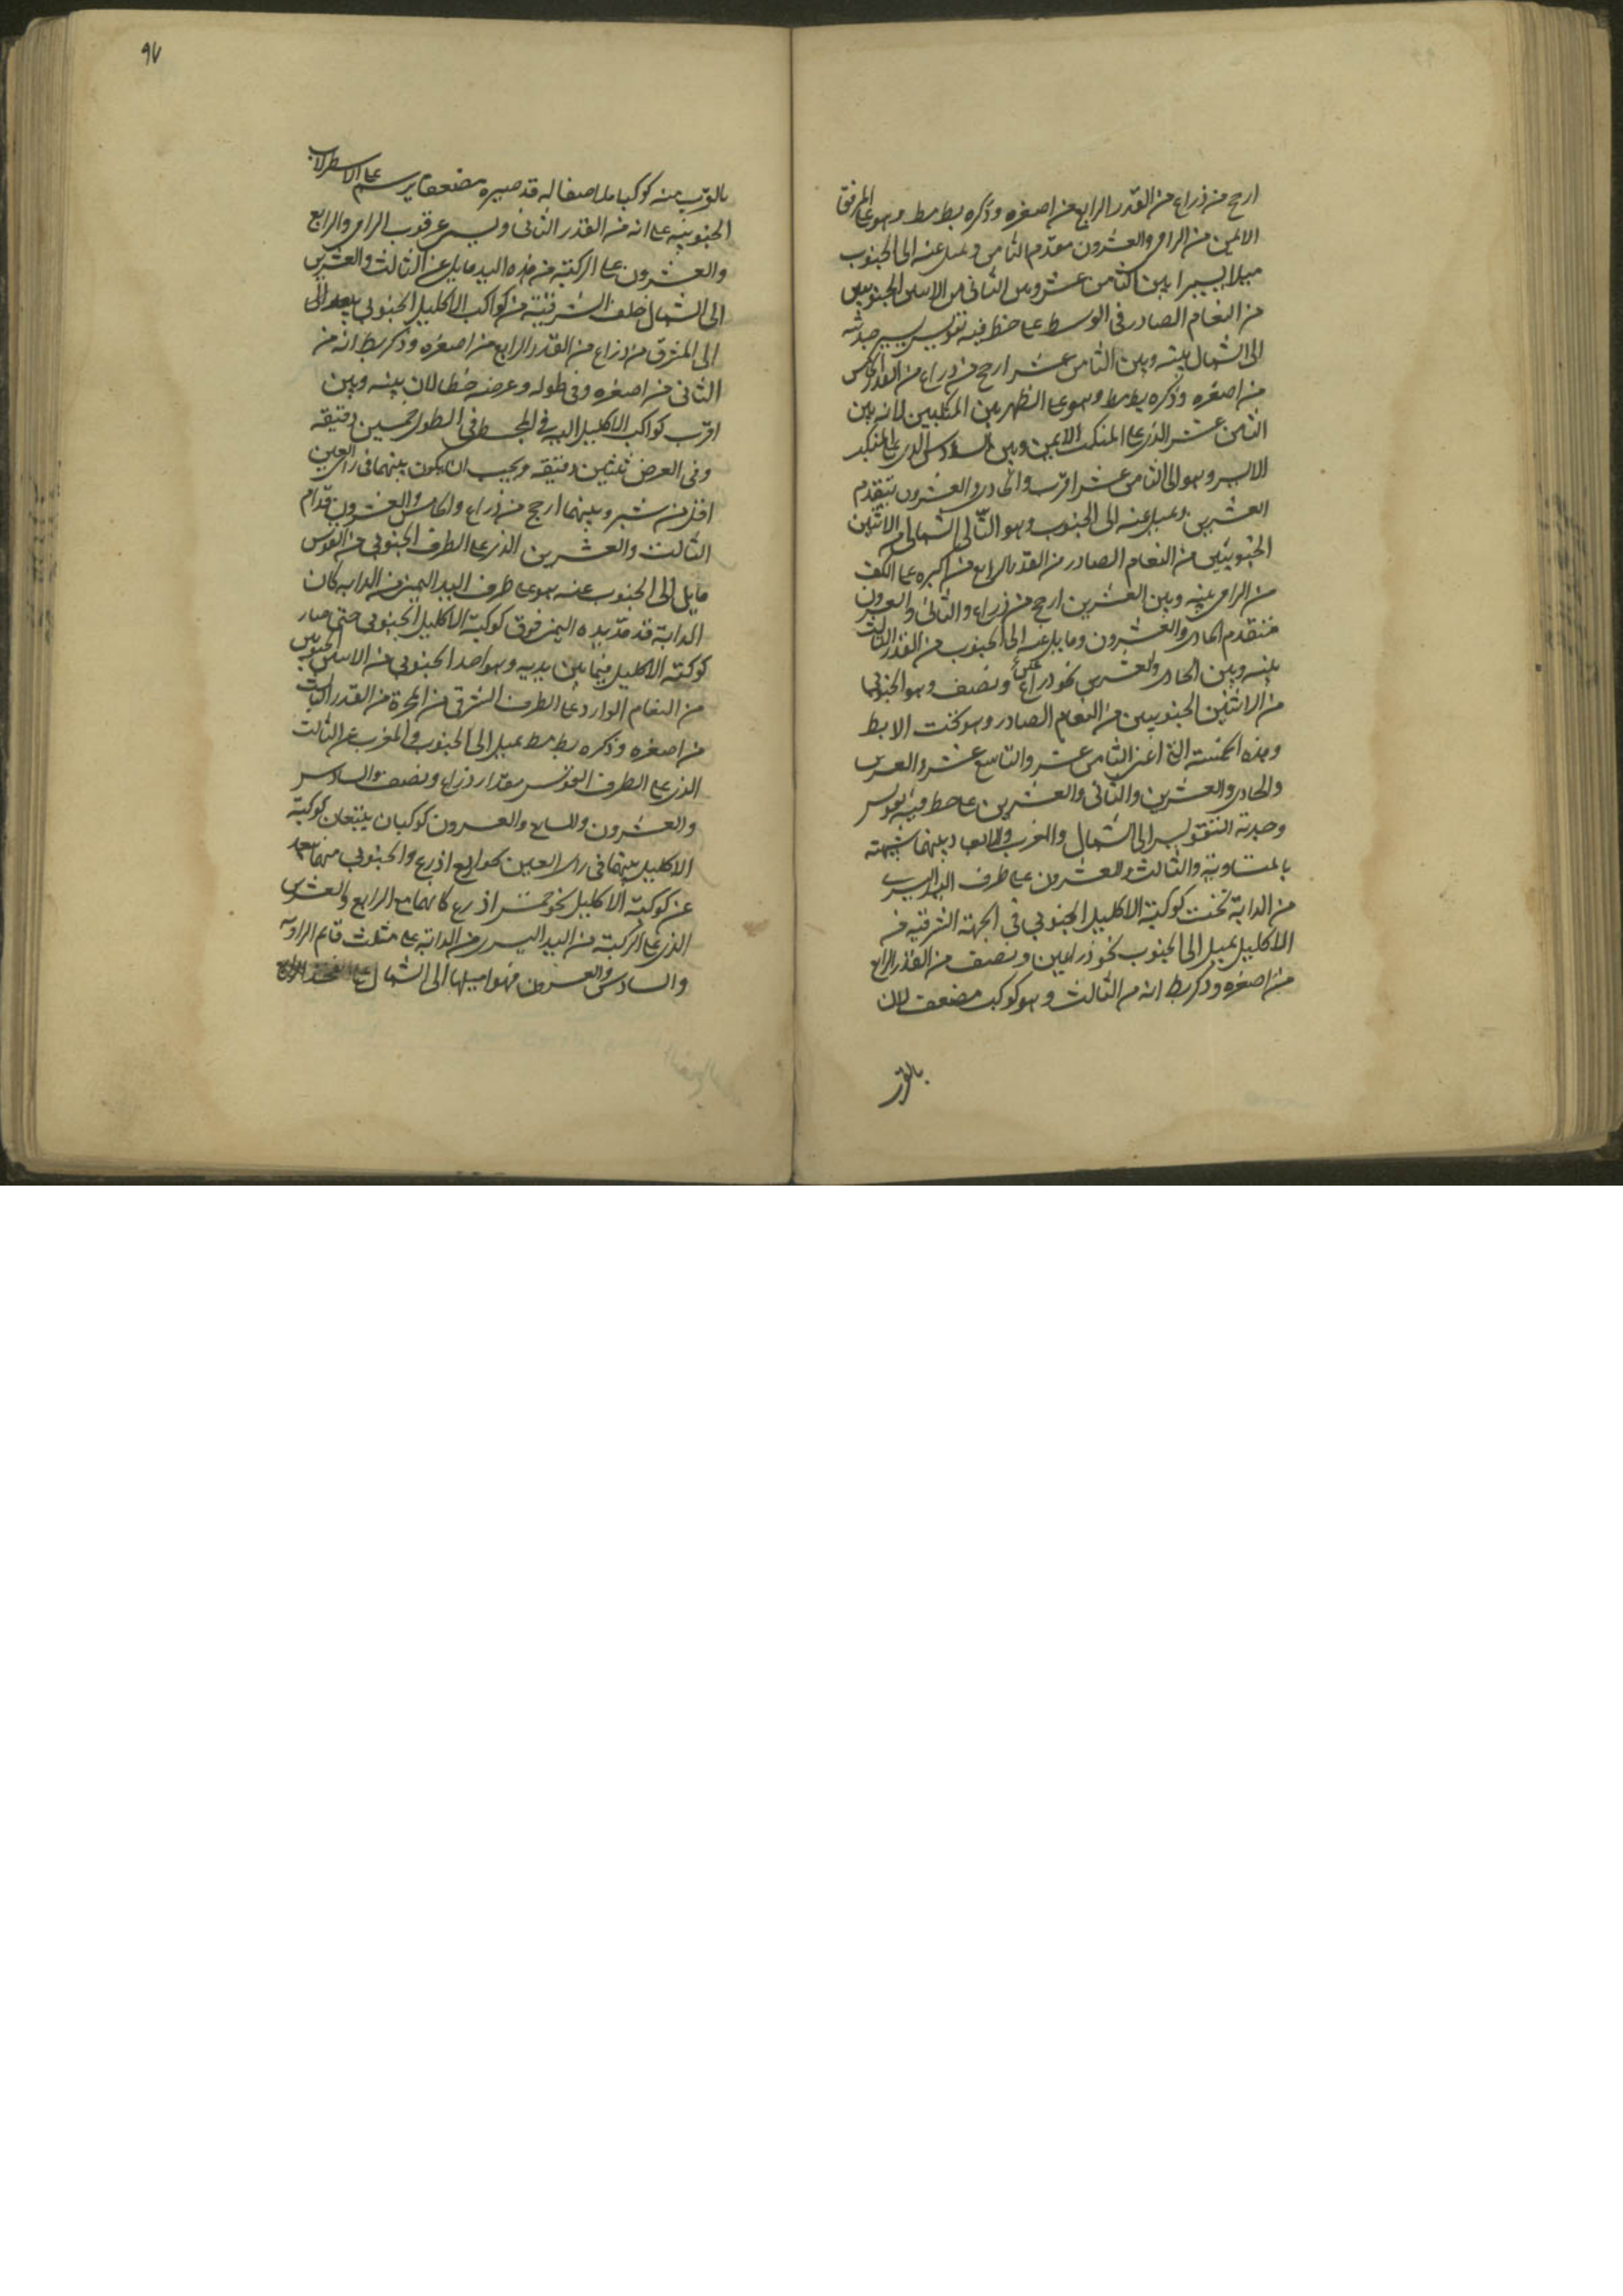 ارجح من ذراع من القدر الرابع من اصغره وذكره بطلميوس مطلقا وهو على المرفق
الايمن من الرامي والعشرون مقدم الثامن و يميل عنه الى الجنوب
ميلا يسيرا بين الثامن عشر وبين الثاني من الاثنين الجنوبيين
من النعام الصادر في الوسط على خط فيه تقويس يسير حدبته
الى الشمال بينه وبين الثامن عشر ارجح من ذراع من القدر الخامس
من اصغره وذكره بط مط وهو على الظهر بين المنكبين لانه بين
الثامن عشر الذي على المنكب الايمن وبين السادس الذي على المنكب
الايسر وهو الى الثامن عشر اقرب والحادي والعشرون يتقدم
العشرين ويميل عنه الى الجنوب وهو التالي الشمالي من الاثنين
الجنوبيين من النعام الصادر من القدر الرابع من اكبره على الكتف
من الرامي بينه وبين العشرين ارجح من ذراع والثاني والعشرون
متقدم الحادي والعشرون ومايل عنه الى الجنوب من القدر الثالث
بينه وبين الحادي والعشرين نحو ذراع ونصف وهو الجنوبي
من الاثنين الجنوبيين من النعام الصادر وهو تحت الابط
وهذه الخمسة التي اعني الثامن عشر والتاسع عشر والعشرين
والحادي والعشرين والثاني والعشرين على خط فيه تقويس
وحدبة التقويس الى الشمال والمغرب والابعاد بينهما شبيهة
بالمتساوية والثالث والعشرون على طرف اليد اليسرى
من الدابة تحت كوكبة الاكليل الجنوبي في الجهة الشرقية من
الاكليل يميل الى الجنوب نحو ذراعين ونصف من القدر الرابع
من اصغره وذكر بط انه من الثالث وهو كوكب مضعف لان
بالقرب
٩٧
بالقرب منه كوكبا ملاصقا له قد صيره مضعفا يرسم على الاسطرلاب
الجنوبية على انه من القدر الثاني ويسمى عرقوب الرامي والرابع
والعشرون على الركبة من هذه اليد مايل عن الثالث والعشرين
الى الشمال خلف الشرقية من كواكب الاكليل الجنوبي يبعد الى
الى المشرق من ذراع من القدر الرابع من اصغره وذكر بط انه من
الثاني من اصغره وفي طوله وعرضه خطا لان بينه وبين
اقرب كواكب الاكليل اليه في المجسطي في الطول خمسين دقيقة
وفي العرض ثلثين دقيقه ويجب ان يكون بينهما في راي العين
اقل من شبر وبينهما ارجح من ذراع والخامس والعشرون قدام
الثالث والعشرين الذي على الطرف الجنوبي من القوس
مايل الى الجنوب عنه هو على طرف اليد اليمنى من الدابة كان
الدابة قد مد يده اليمنى فوق كوكبة الاكليل الجنوبي حتى صار
كوكبة الاكليل فيما بين يديه وهو احد الجنوبي من الاثنين الجنوبيين
من النعام الوارد على الطرف الشرقي من المجرة من القدر الثالث
من اصغره وذكره بط مط يميل الى الجنوب والمغرب عن الثالث
الذي على الطرف القوس مقدار ذراع ونصف والسادس
والعشرون والسابع والعشرون كوكبان يتبعان كوكبة
الاكليل بينهما في راي العين نحو اربع اذرع والجنوبي منهما يبعد
عن كوكبة الاكليل نحو خمس اذرع كانهما مع الرابع والعشرين
الذي على الركبة من اليد اليسرى من الدابة على مثلث قائم الزاوية
والسادس والعشرون فهو اميلها الى الشمال على فخذ